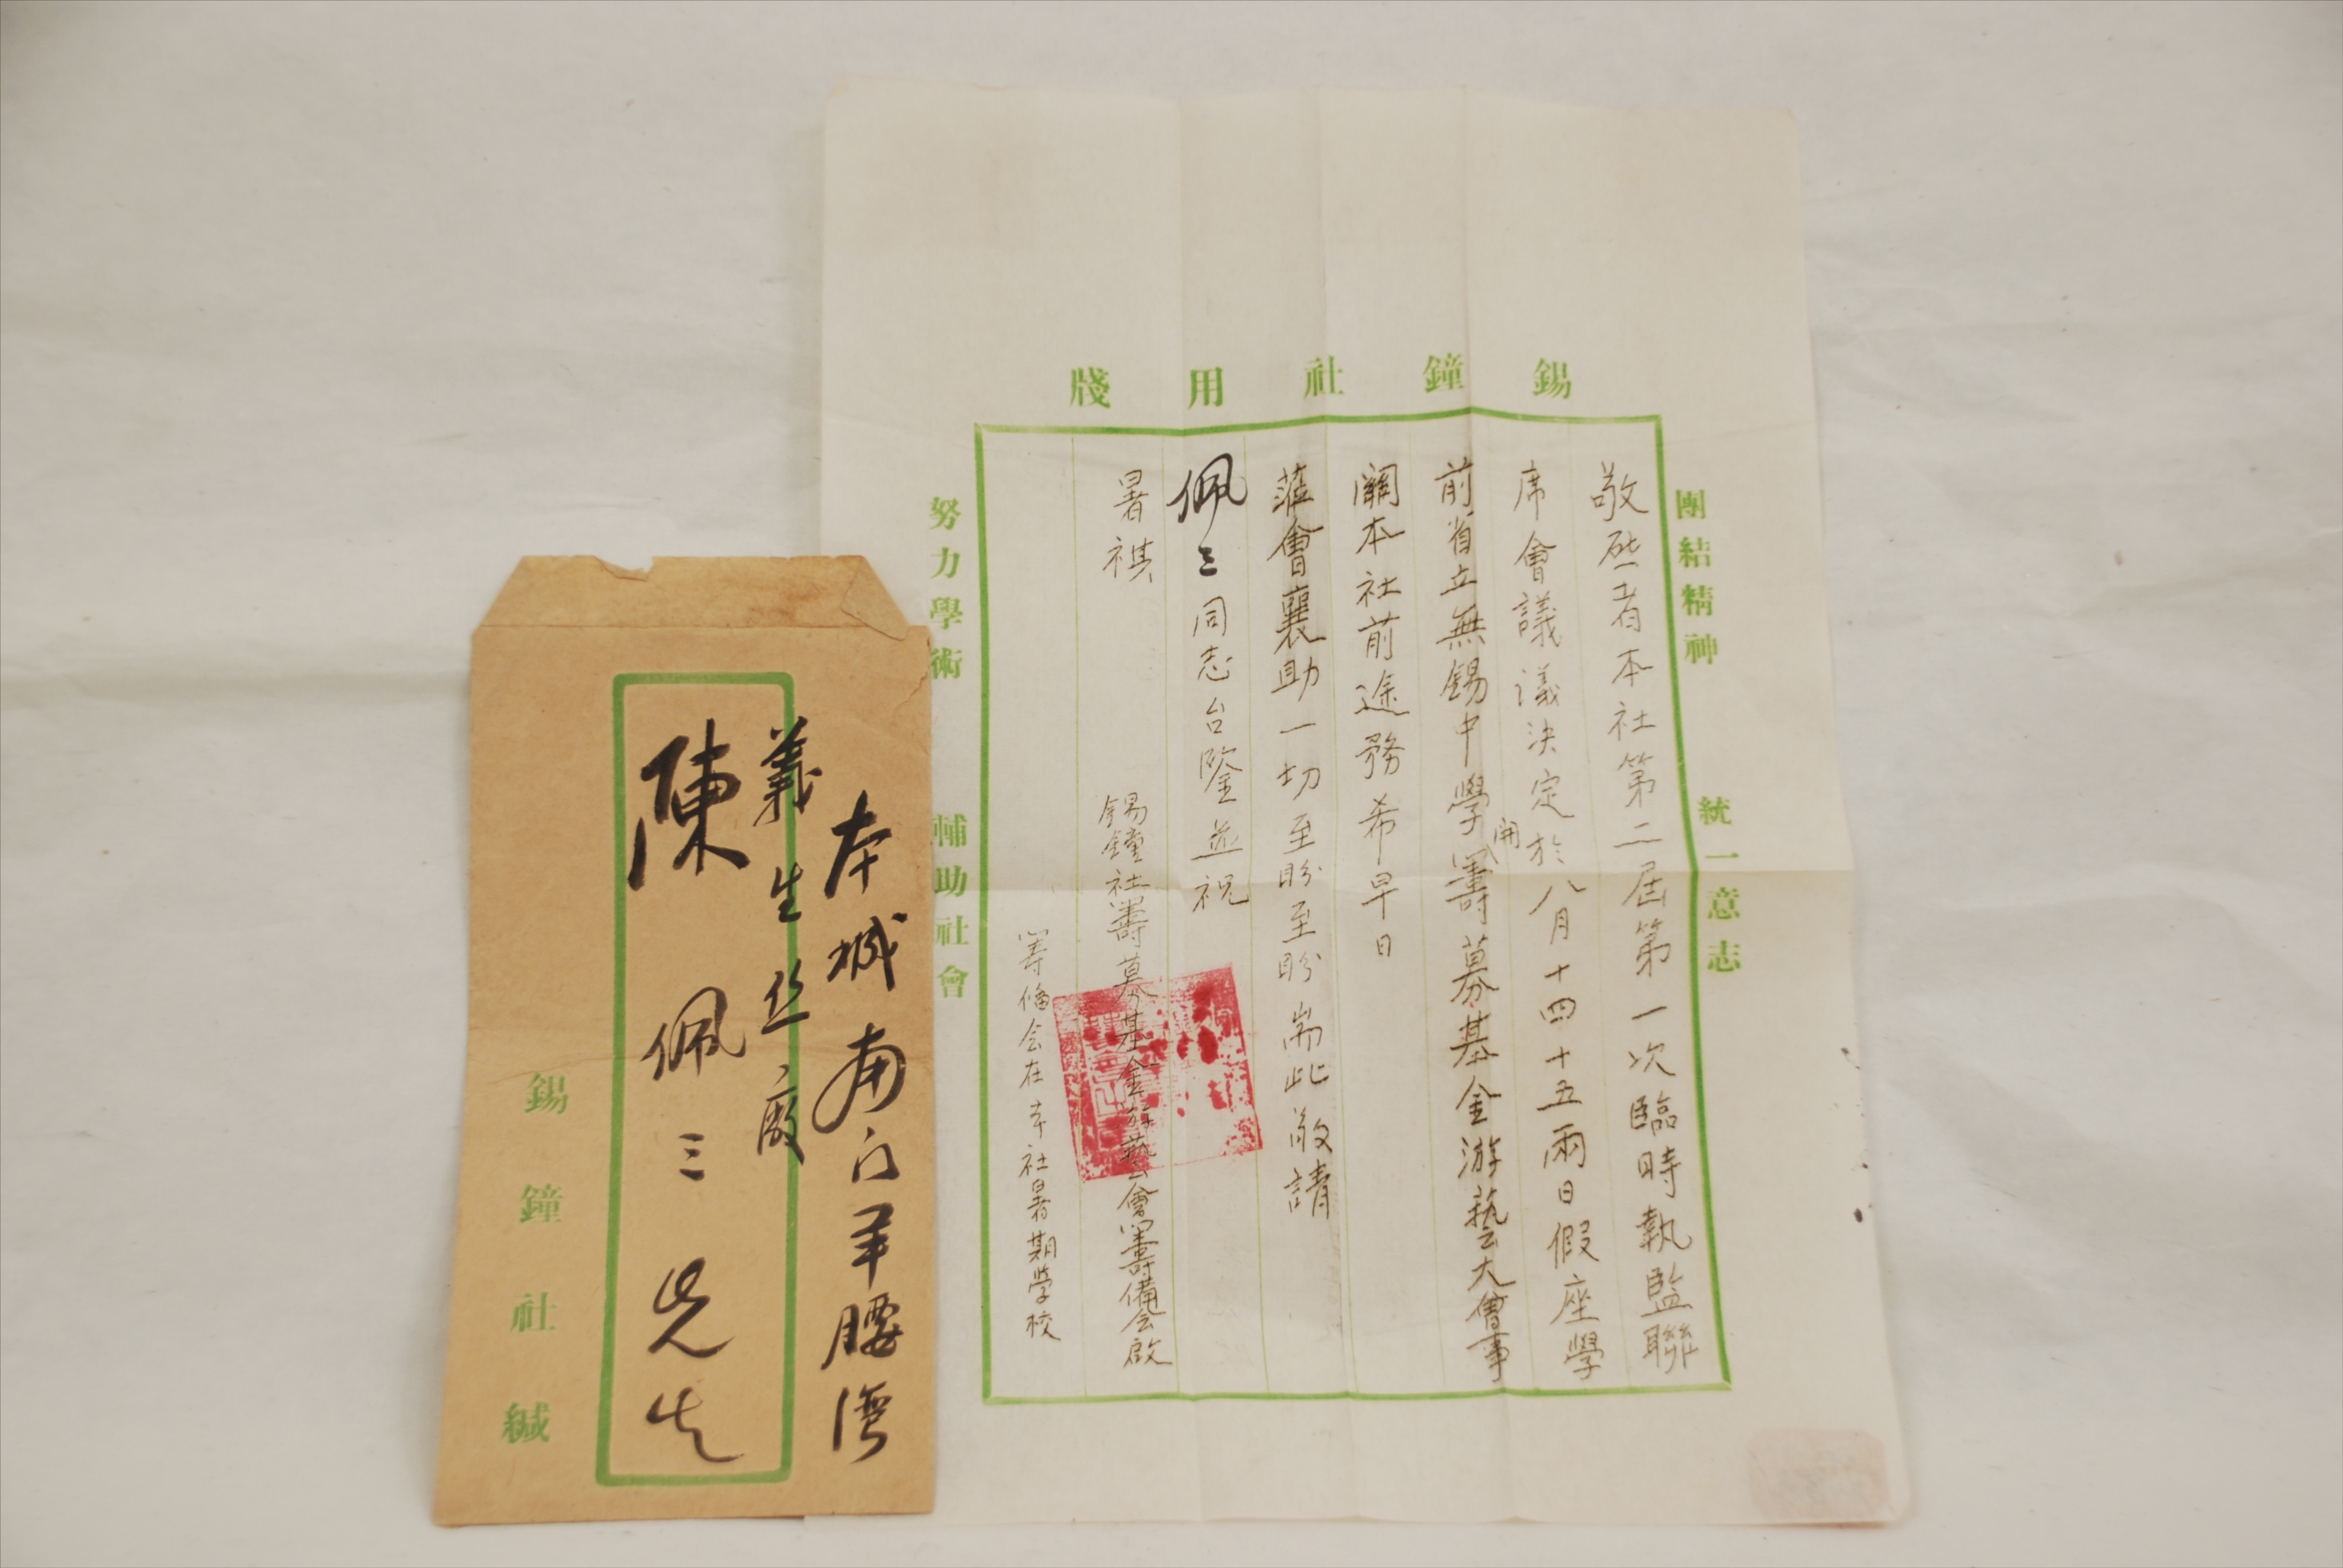 錫鐘社用牋
團結精神 統一意志
敬啓者本社第二屆第一次臨時執監聯
席會議議決定於八月十四十五兩日假座學
前省立無錫中學開籌募基金游藝大會事
關本社前途務希早日
蒞會襄助一切至盼至盼耑此敬請
佩三同志台鑒並祝
暑祺
錫鐘社籌募基金游藝會籌備会啟
籌備会在本社暑期学校
努力學術 輔助社會
本城南门羊腰湾
義生丝廠
陳佩三先生
錫鐘社緘